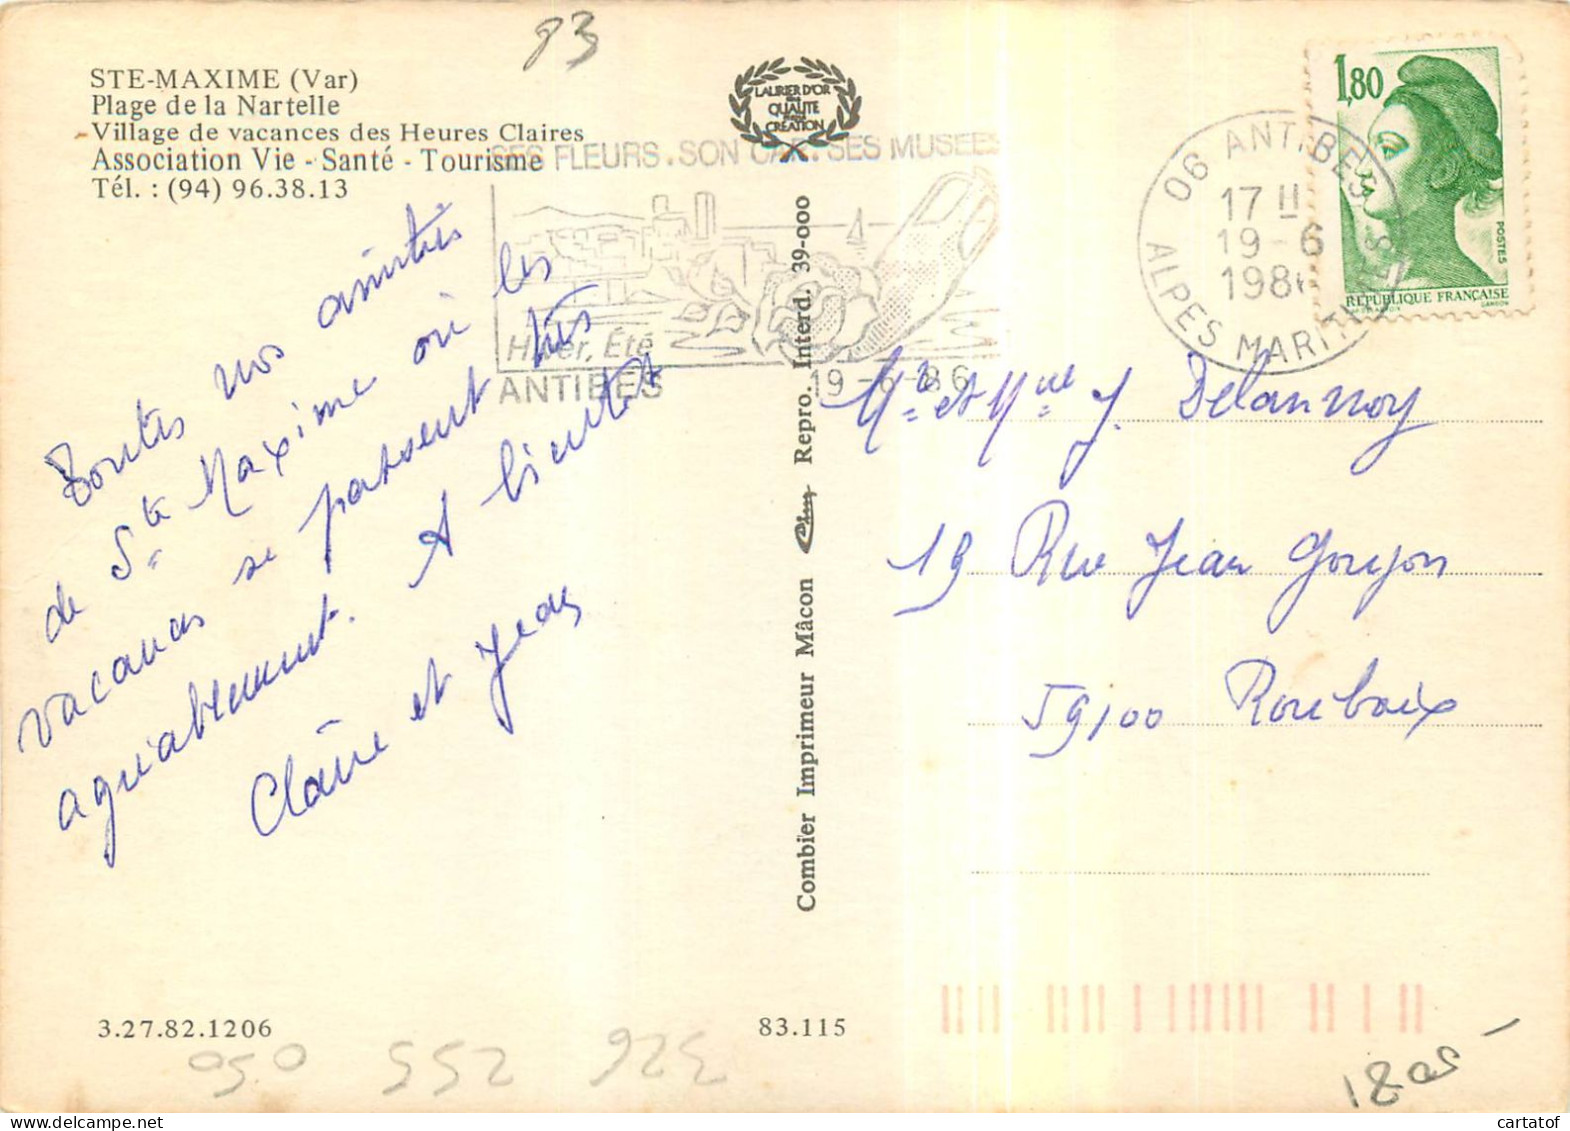 83
STE-MAXIME (Var)
Plage de la Nartelle
Village de vacances des Heures Claires
Association Vie - Santé - Tourisme
Tél. : (94) 96.38.13
LAURIER D'OR
QUALITE
CREATION
SES FLEURS . SON CAP . SES MUSEES
Hiver, Été
ANTIBES
19-6-86
06 ANTIBES
17 H
19-6
1986
ALPES MARITIMES
1,80
POSTES
REPUBLIQUE FRANÇAISE
GANDON
Toutes nos amitiés
de Ste Maxime où les
vacances se passent très
agréablement. A bientôt
Claire et Jean
Combier Imprimeur Mâcon Cim Repro. Interd. 39-000
Mr et Mme J. Delannoy
19 Rue Jean Goujon
59100 Roubaix
3.27.82.1206
83.115
050 552 326
1805
cartatof